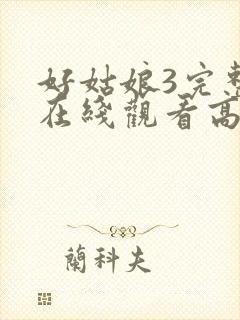 好姑娘3完整
在綫觀看高
蘭科夫